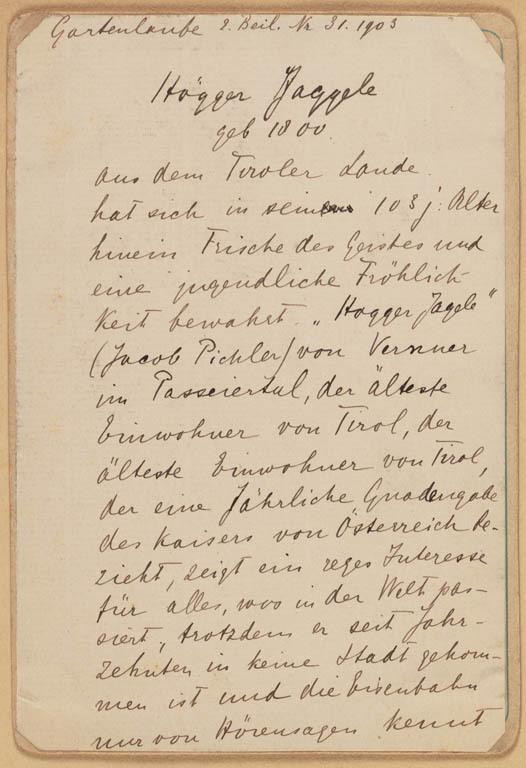 Gartenlaube 2. Beil. Nr 31. 1903
Högger Jaggele
geb 1800
aus dem Tiroler Lande.
hat sich in seinem 103 j. Alter
hinein Frische des Geistes und
eine jugendliche Fröhlich-
keit bewahrt. „Hogger Jagele"
(Jacob Pichler) von Vernuer
im Passeiertal, der älteste
Einwohner von Tirol, der
älteste Einwohner von Tirol,
der eine Jährliche Gnadengabe
des Kaisers von Österreich be-
zieht, zeigt ein reges Interesse
für alles, was in der Welt pas-
siert, trotzdem er seit Jahr-
zehnten in keine Stadt gekom-
men ist und die Eisenbahn
nur von Hörensagen kennt